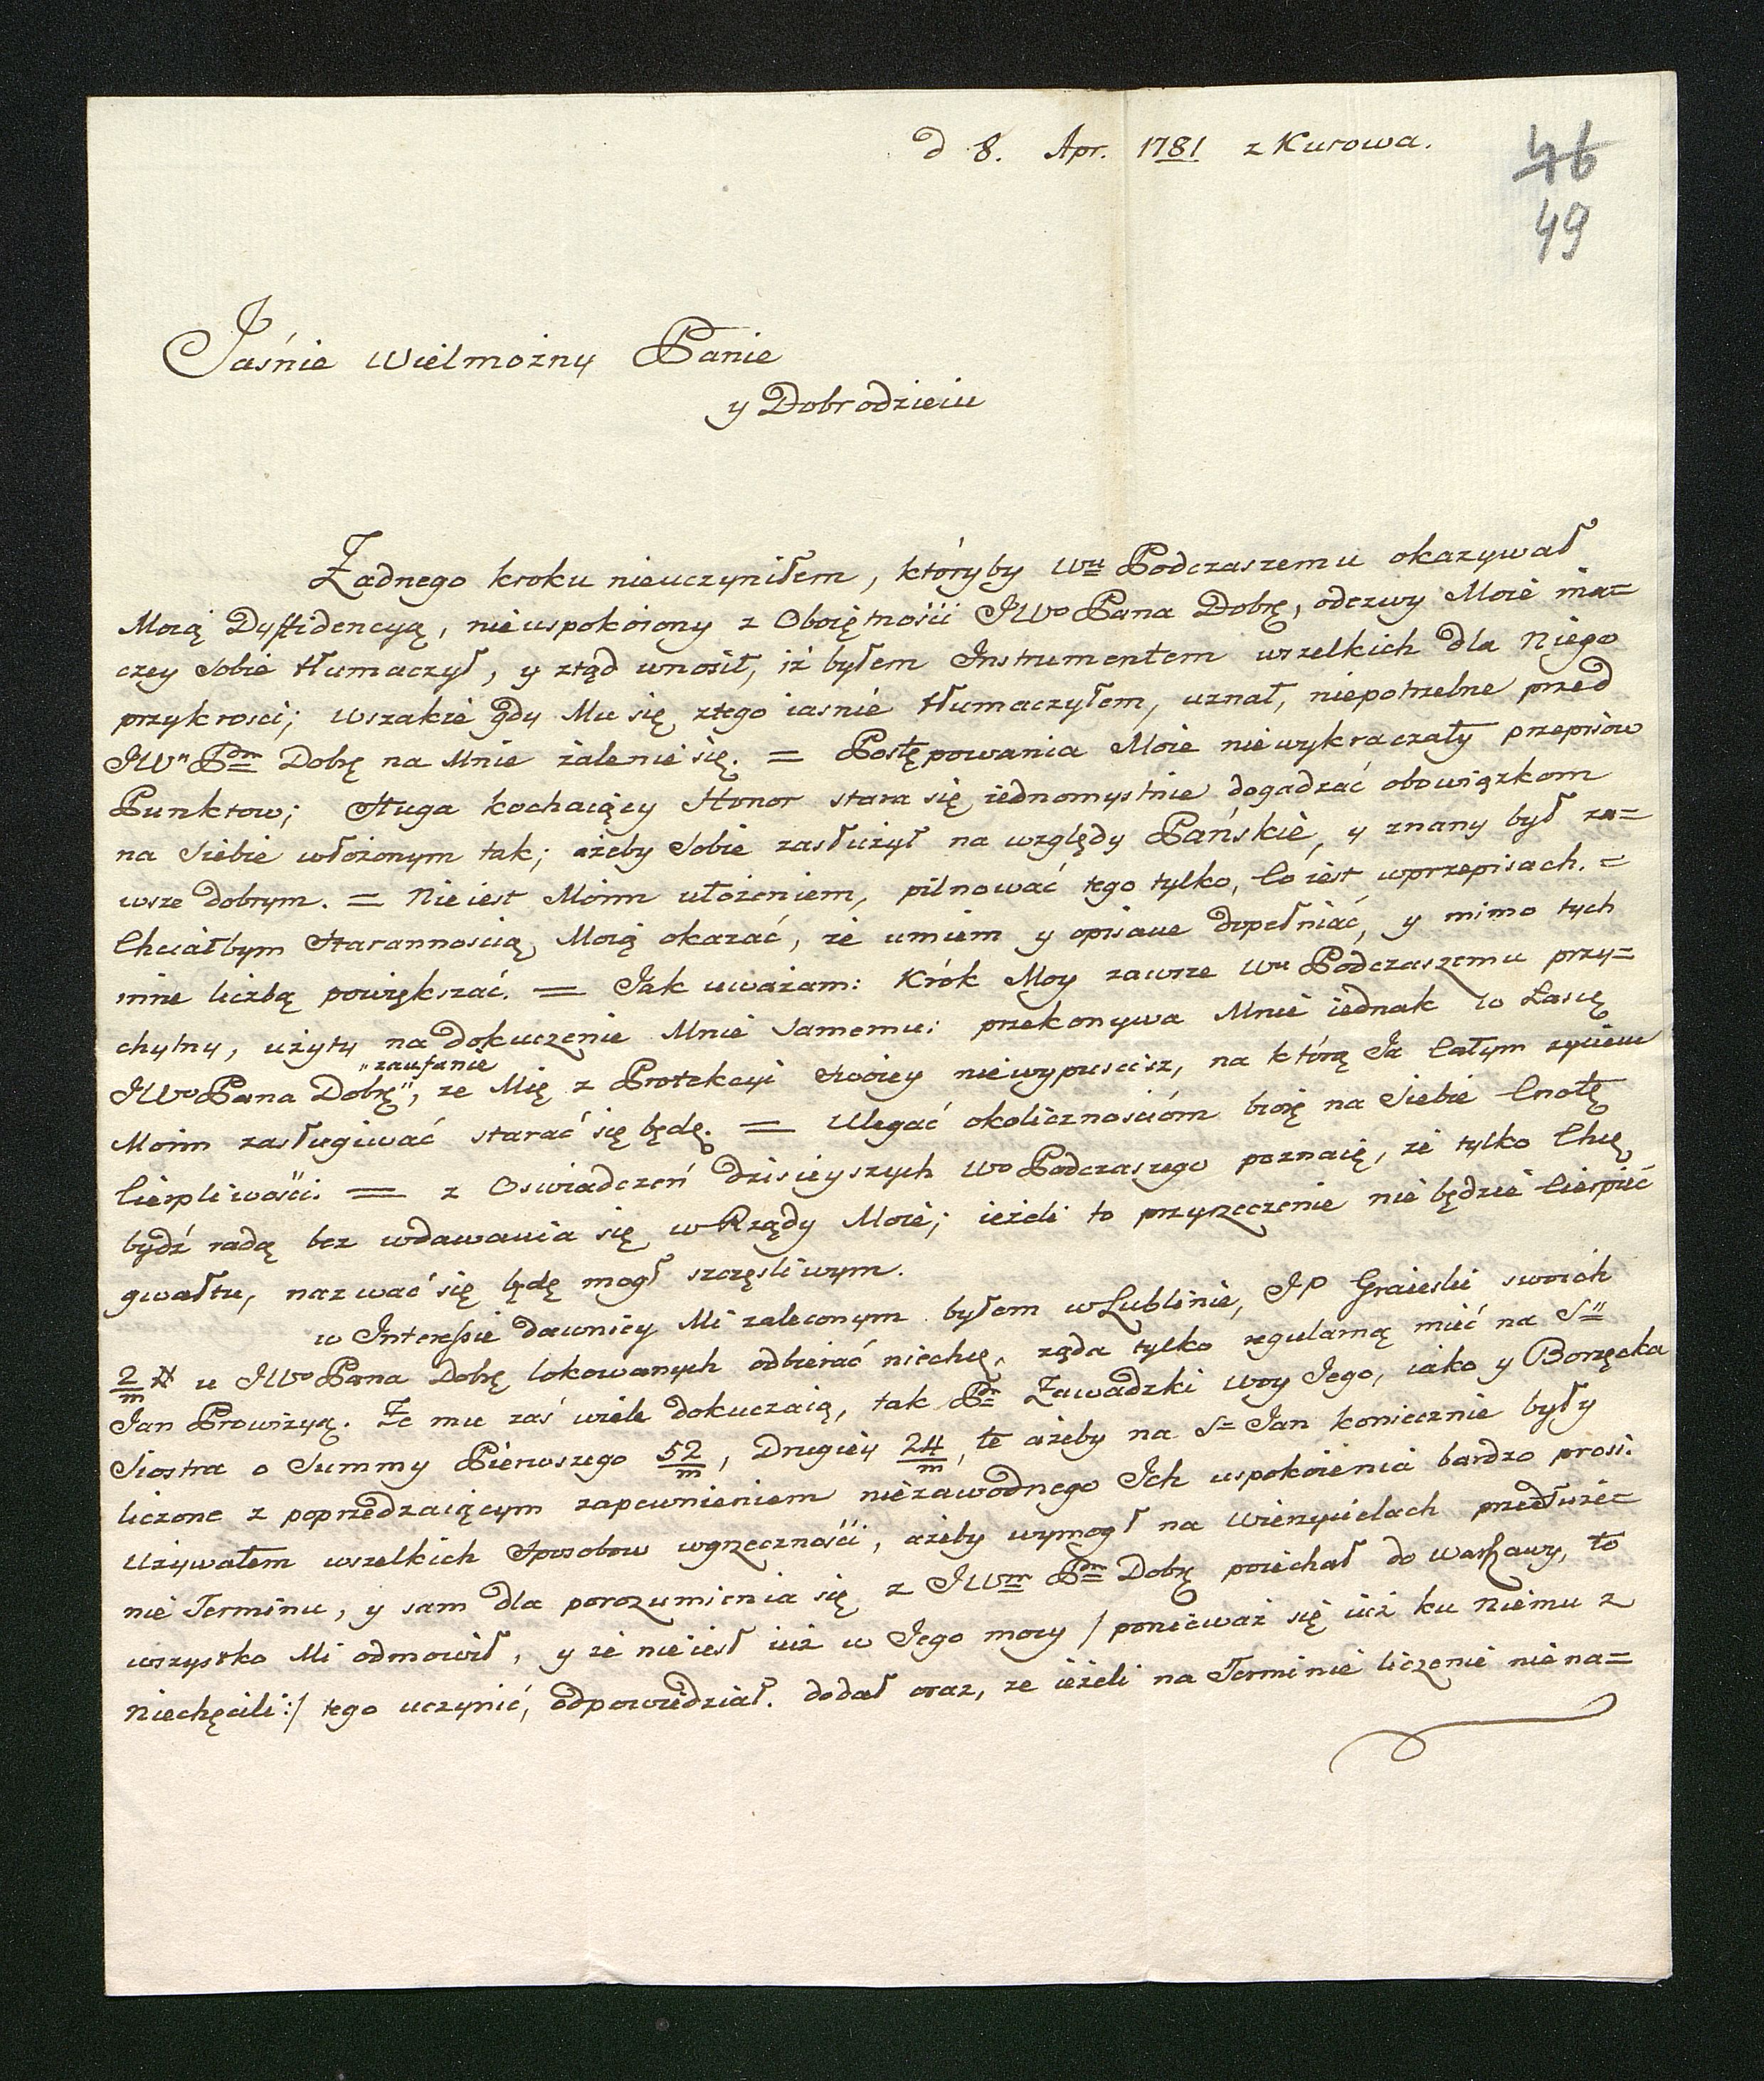 d 8. Apr. 1781 z Kurowa.
46
49
Jaśnie Wielmożny Panie
y Dobrodzieiu
Żadnego kroku nieuczyniłem, któryby Wu Podczaszemu okazywał
Moią Dyffidencyą, nieuspokoiony z Oboiętności JWo Pana Dobrę, odezwy Moie ina=
czey sobie tłumaczył, y ztąd wnosił, iż byłem Instrumentem wszelkich dla Niego
przykrosci; wszakże gdy Mu się ztego iasnie tłumaczyłem, uznał, niepotrzebne przed
JWn Pdm Dobrę na Mnie żalenie się. = Postępowania Moie niewykraczały przepisow
Punktow; Sługa kochaiący Honor stara się iednomyslnie dogadzać obowiązkom
na siebie włożonym tak; ażeby sobie zasłużył na względy Pańskie, y znany był za=
wsze dobrym. = Nie iest Moim ułożeniem, pilnować tego tylko, co iest wprzepisach. =
Chciałbym Starannoscią Moią okazać, że umiem y opisane dopełniać, y mimo tych
inne liczbą powiększać. = Jak uważam: Krok Moy zawsze Wu Podczaszemu przy=
chylny, użyty na dokuczenie Mnie samemu: przekonywa Mnie iednak w Łascę
"zaufanie
JWo Pana Dobrę", ze Mię z Protekcyi Swoiey niewypuscisz, na którą Ja całym życiem
Moim zasługiwać starać się będę. = Ulegać okolicznościom biorę na siebie Cnotę
Cierpliwości. = z Oswiadczeń dzisieyszych Wo Podczaszego poznaię, że tylko Chcę
bydź radą bez wdawania się w Rządy Moie; ieżeli to przyrzeczenie nie będzie cierpieć
gwałtu, nazwać się będę mogł szczęsliwym.
w Interessie dawniey Mi zaleconym byłem w Lublinie, JP Graieski swoich
2/m # u JWo Pana Dobrę lokowanych odbierać niechcę, żąda tylko regularną mieć na Sn
Jan Prowizyą. Ze mu zaś wiele dokuczaią, tak Pr Zawadzki wuy Jego, iako y Borzęcka
Siostra o Summy Pierwszego 52/m, Drugiey 24/m, te ażeby na S= Jan koniecznie były
liczone z poprzedzaiącym zapewnieniem niezawodnego Ich uspokoienia bardzo prosi.
Używałem wszelkich sposobow wgrzeczności, ażeby wymogł na Wierzycielach przedłuże=
nie Terminu, y sam dla porozumienia się z JWm Pdm Dobrę poiechał do Warszawy, to
wszystko Mi odmowił, y że nieiest iuż w Jego mocy / ponieważ się iuż ku niemu z
niechęcili :/ tego uczynić, odpowiedział. dodał oraz, ze ieżeli na Terminie liczenie niena=